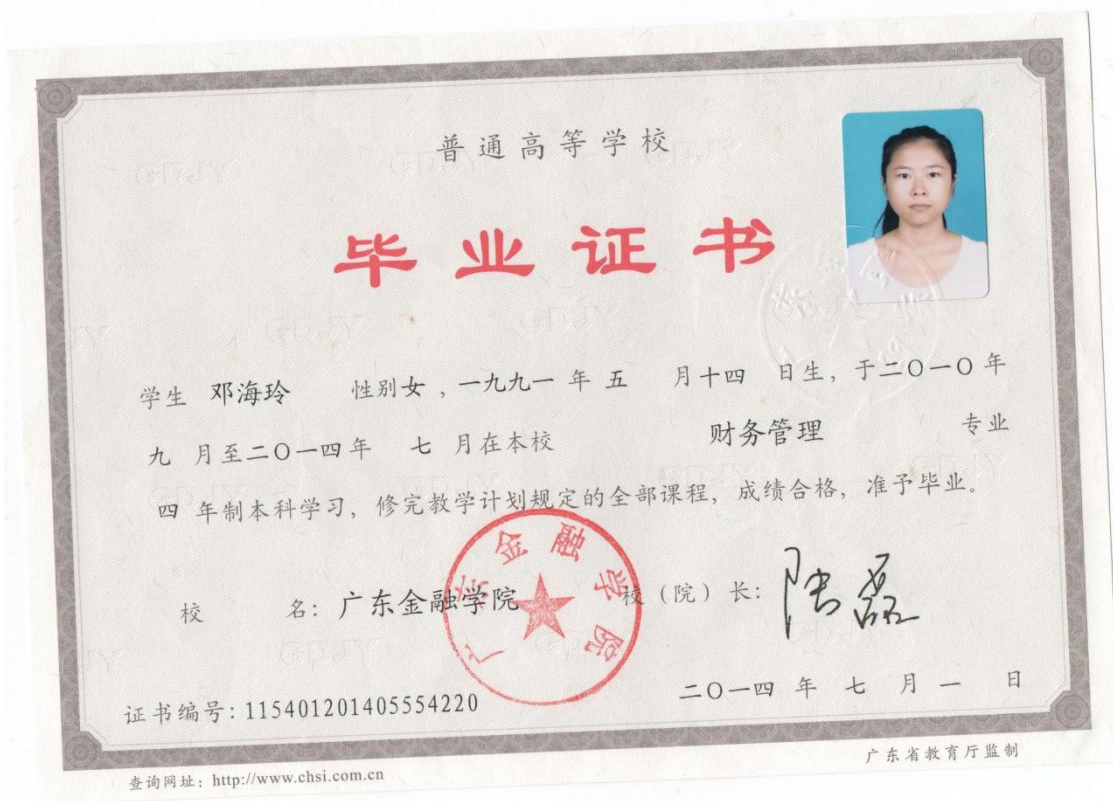 普通高等学校
毕业证书
学生 邓海玲 性别女，一九九一 年 五 月十四 日生，于二〇一〇年
九 月至二〇一四年 七 月在本校 财务管理 专业
四 年制本科学习，修完教学计划规定的全部课程，成绩合格，准予毕业。
校 名：广东金融学院 校（院）长：
广东金融学院
证书编号：115401201405554220 二〇一四 年 七 月 一 日
查询网址：http://www.chsi.com.cn 广东省教育厅监制